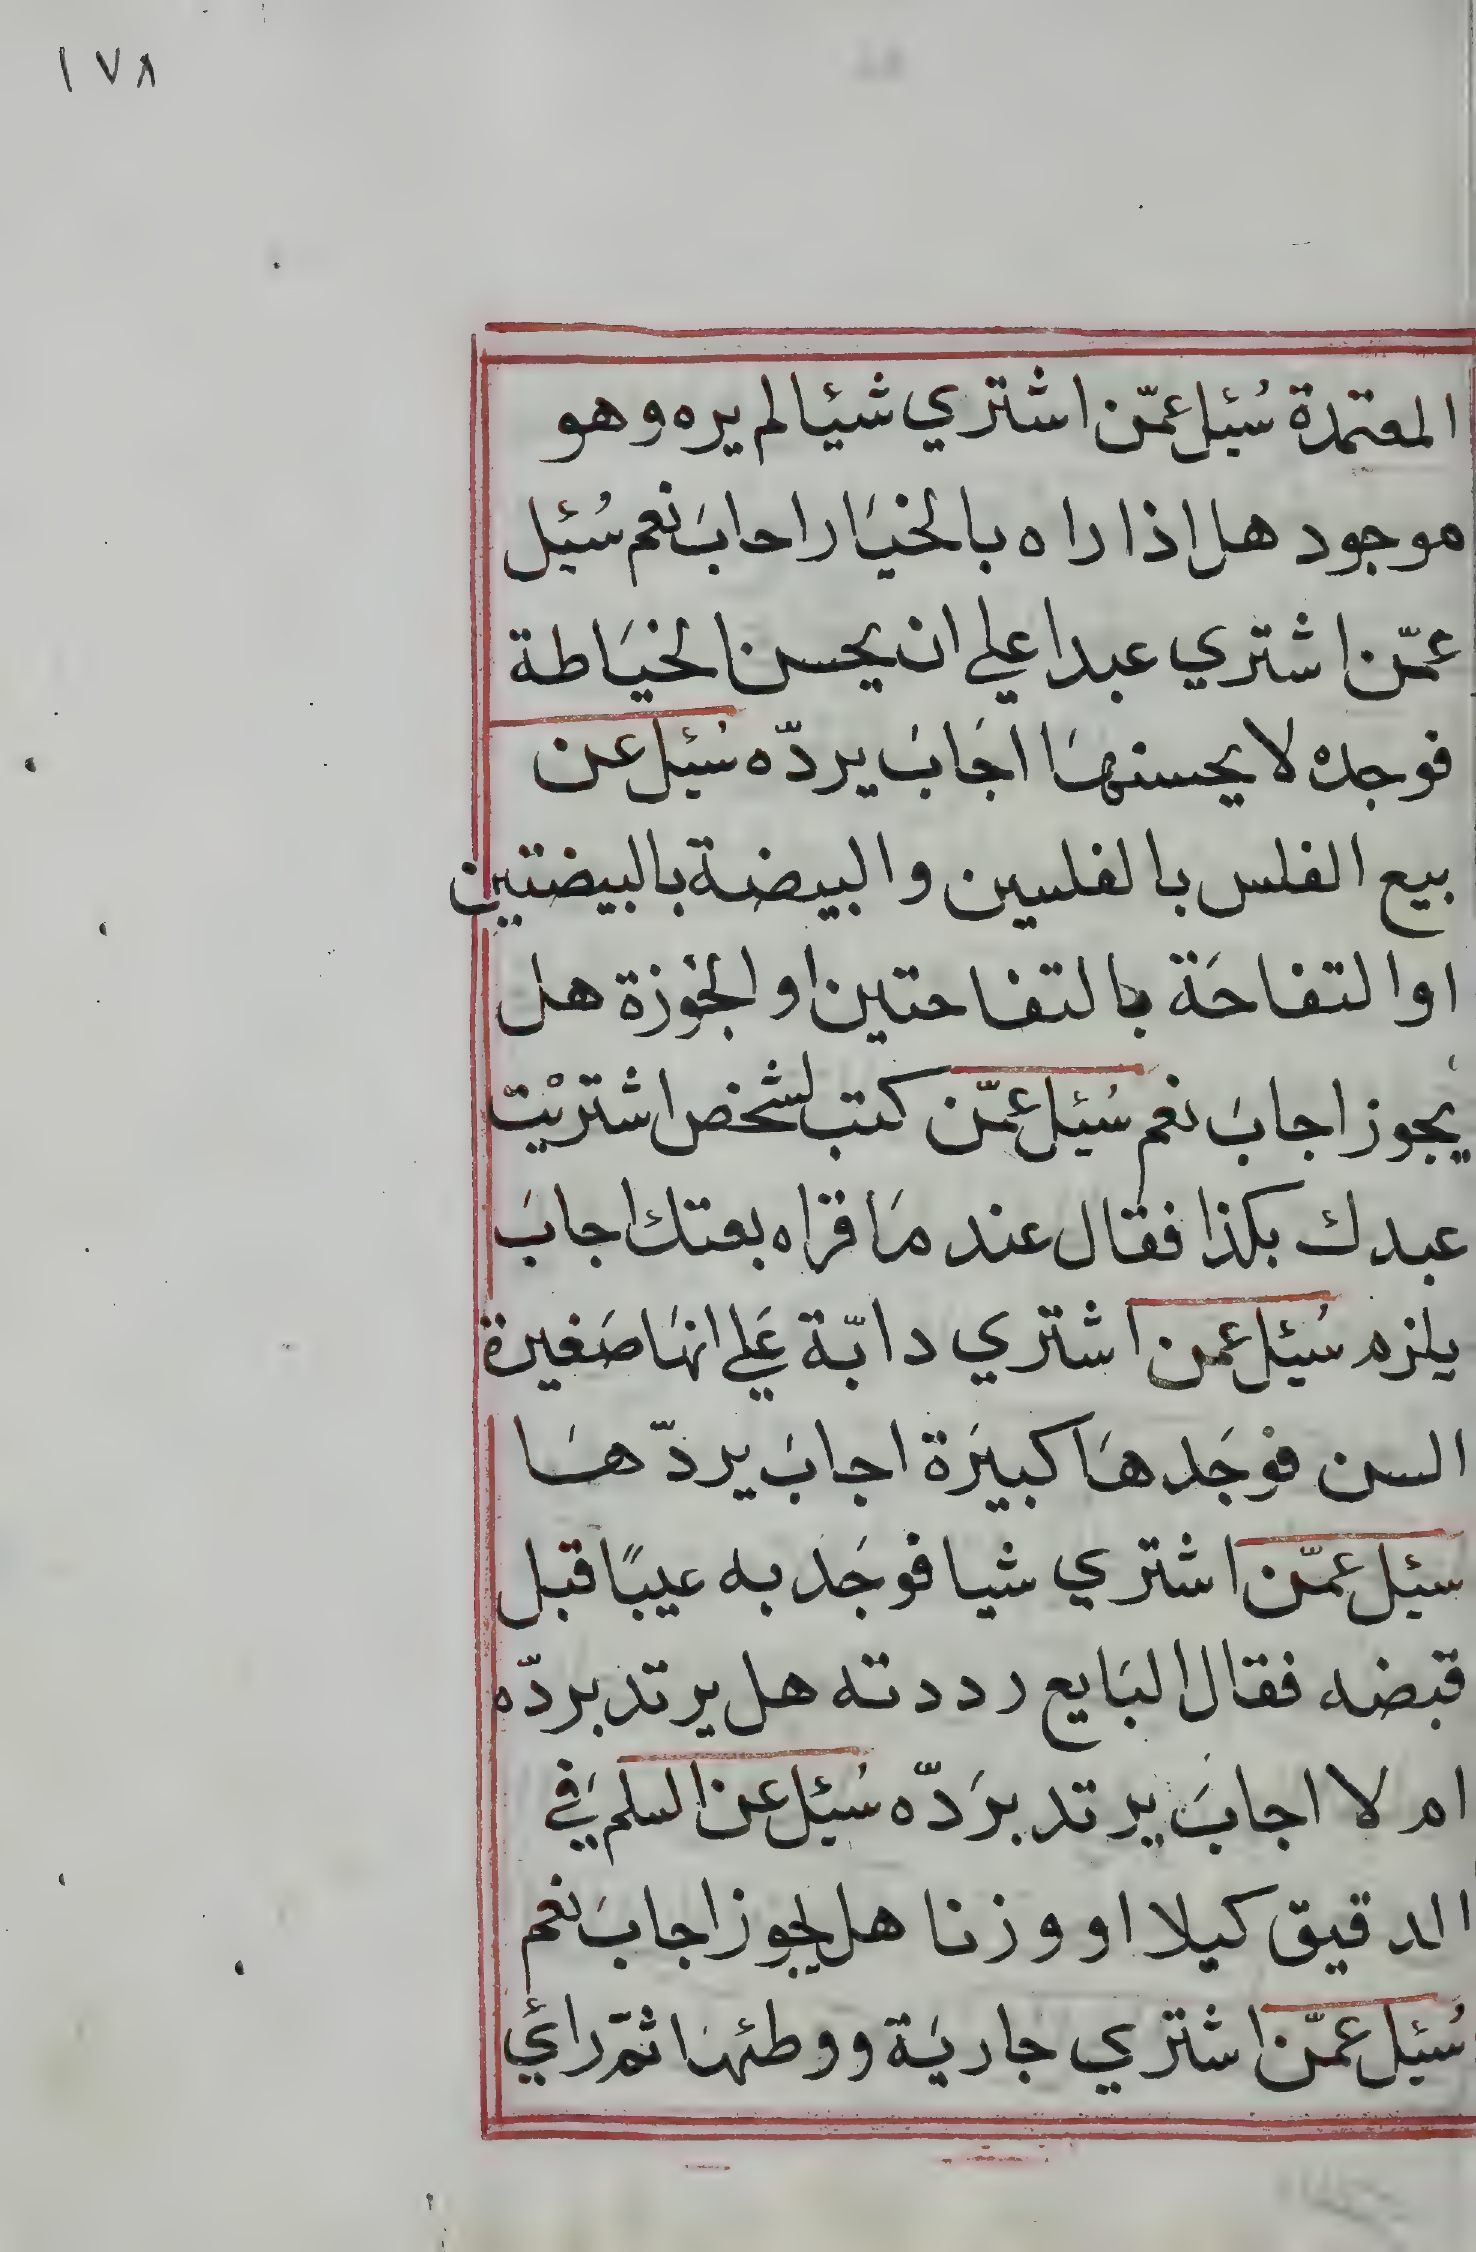 ١٧٨
المعتمدة سُئِل عمّن اشتري شئيا لم يره وهو
موجود هل اذا راه بالخيَار احابَ نعم سُئِل
عمّن اشتري عبدا علي ان يحسن الخيَاطة
فوجده لا يحسنهَا اجَابَ يردّه سُئِل عن
بيع الفلس بالفلسين والبيضة بالبيضتين
او التفاحَة بالتفاحتين او الجَوزة هل
يجوز اجابَ نعم سُئِل عمّن كتب لشخص اشتريْت
عبدك بكذا فقال عند مَا قراه بعتك اجابَ
يلزم سُئِل عمن اشتري دابّة عَلي انهَا صَغيرة
السن فوْجَدهَا كبيَرة اجابَ يردّهَا
سئِل عمّن اشتري شيا فوجَد به عيبًا قبل
قبضه فقال البَايع رددته هل يرتد بردّه
ام لا اجابَ يرتد برَدّه سُئِل عن السلم في
الدقيق كيلا او وزنا هل يجوز اجابَ نعم
سُئِل عمّن اشتري جاريَة ووطئهَا ثمّ رائَي